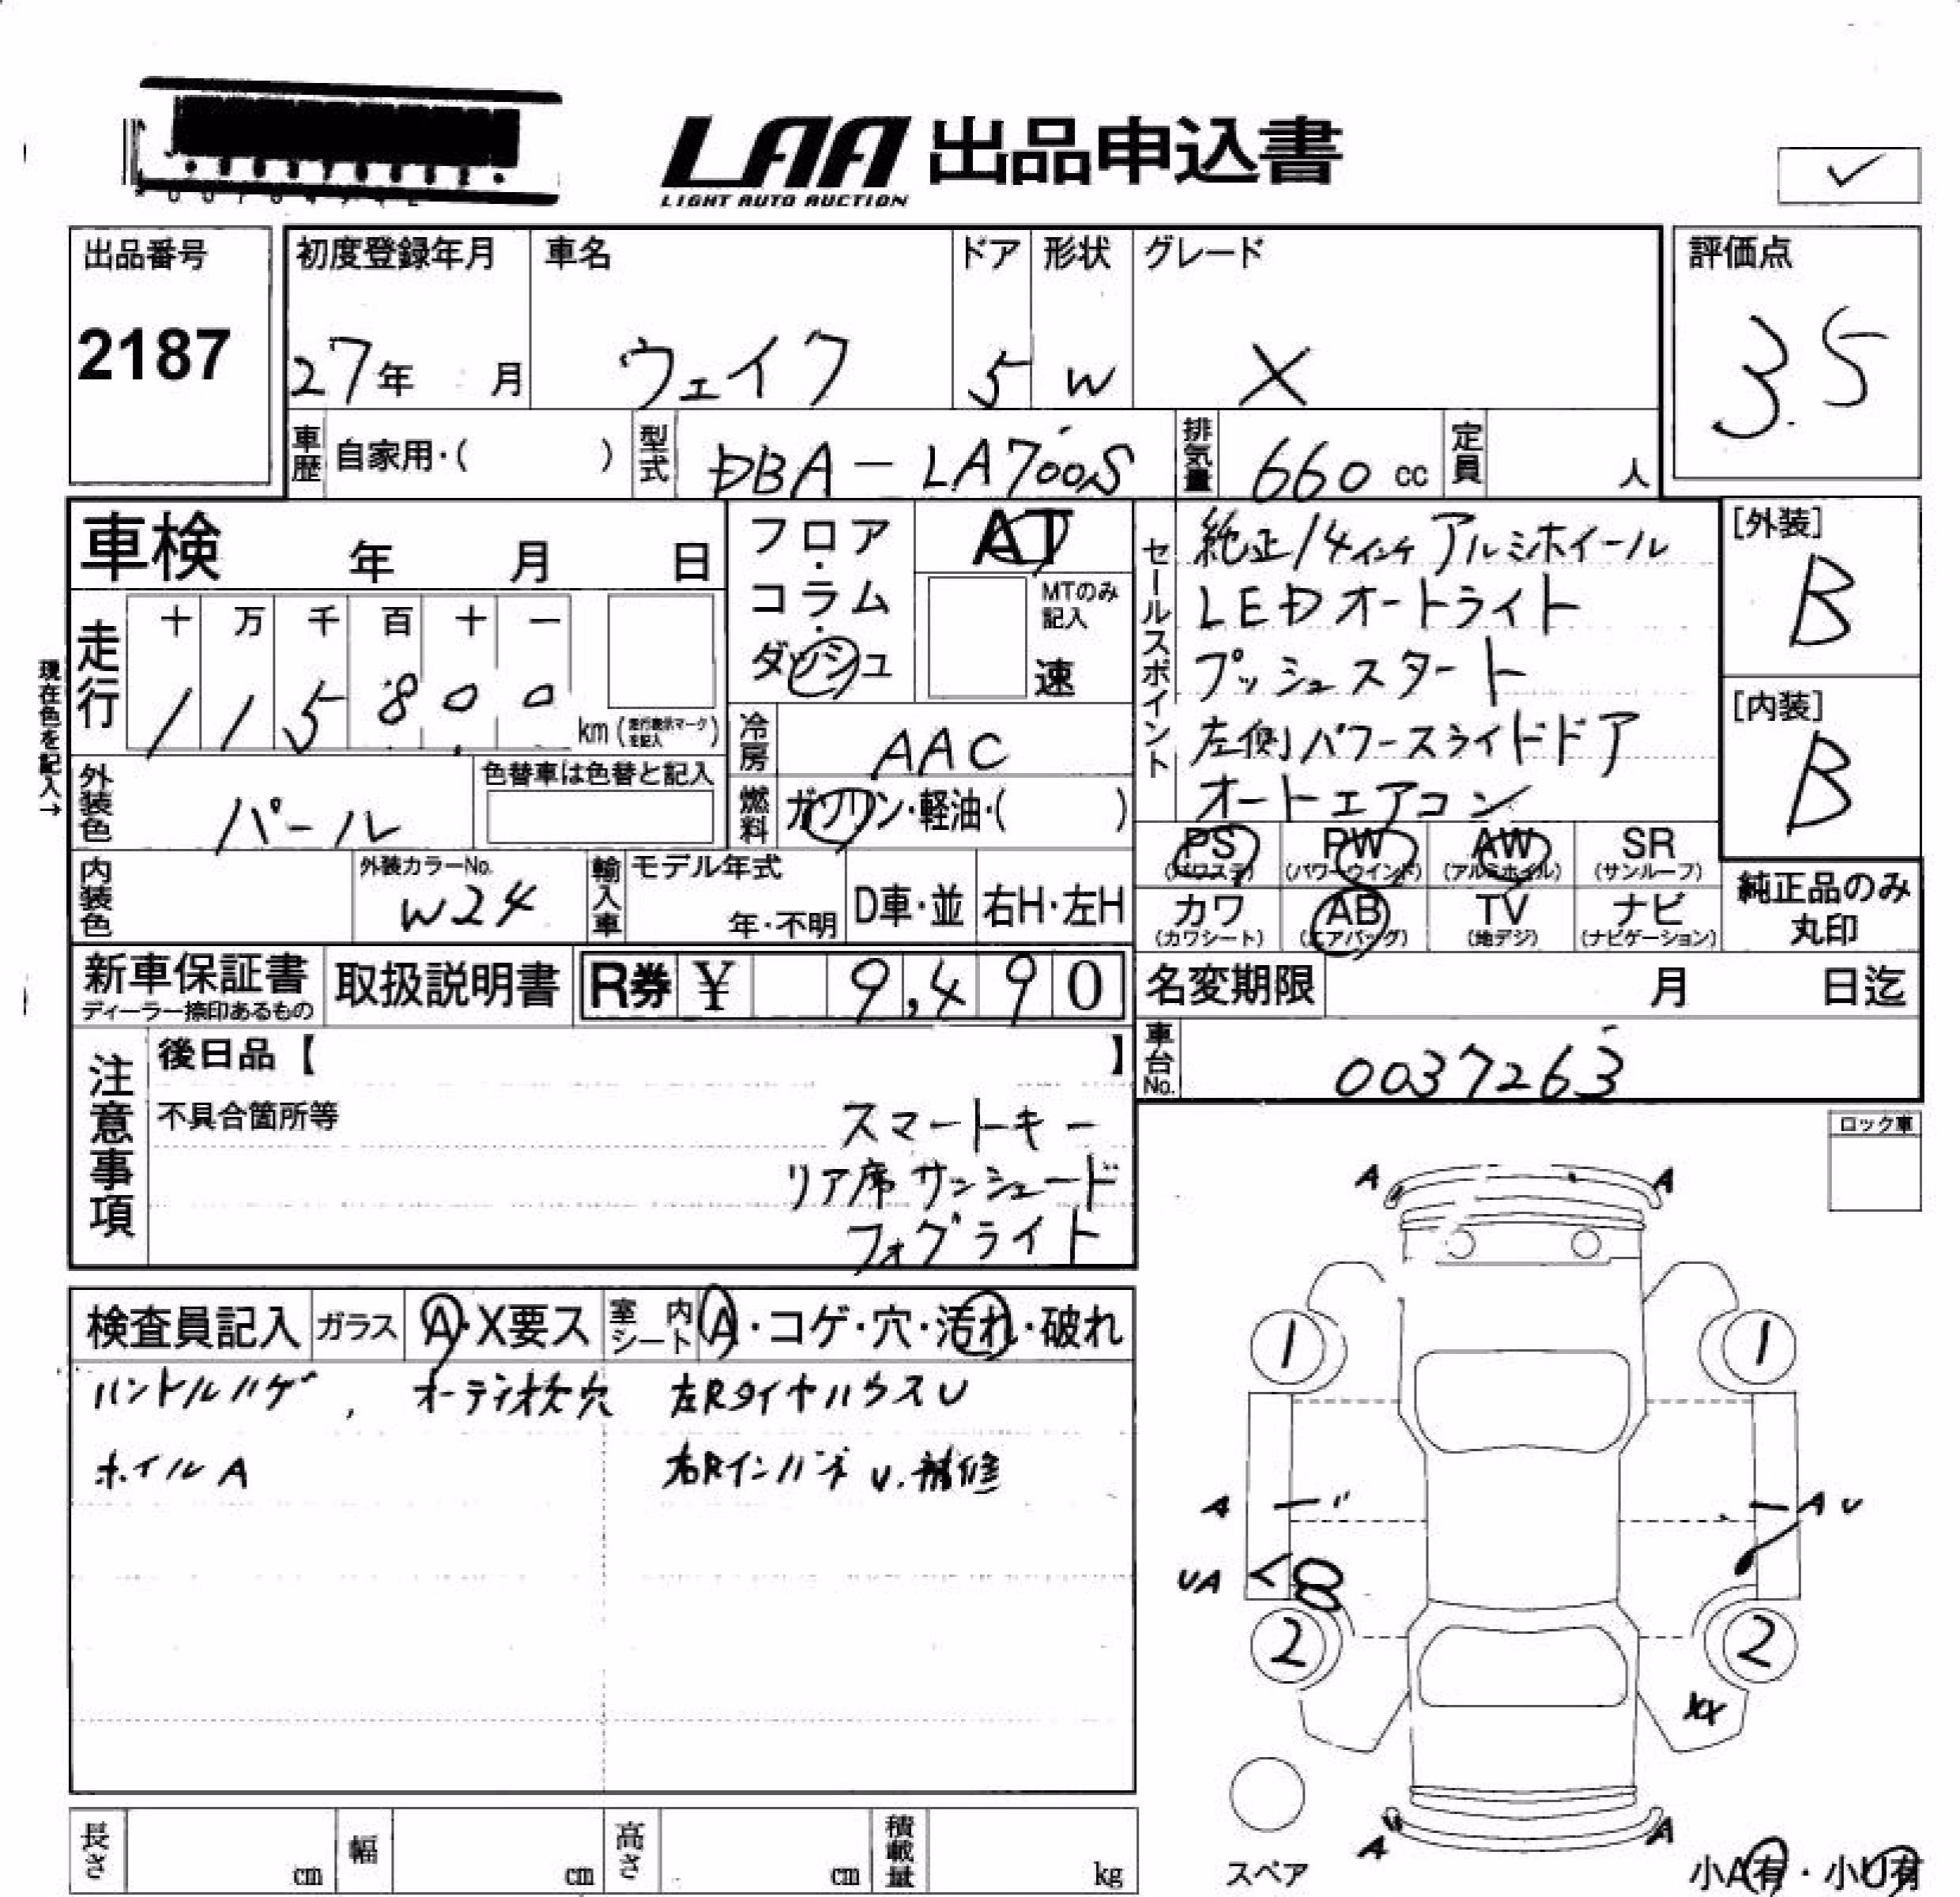 LAA 出品申込書
LIGHT AUTO AUCTION
✓
出品番号
2187
初度登録年月
27年 月
車名
ウェイク
ドア
5
形状
W
グレード
X
評価点
3.5
車歴 自家用・( )
型式 DBA-LA700S
排気量 660 cc
定員 人
車検 年 月 日
フロア・コラム・ダッシュ
AT
MTのみ記入
速
走行
十 万 千 百 十 一
1 1 5 8 0 0
km(走行表示マークを記入)
現在色を記入→
外装色 パール
色替車は色替と記入
冷房 AAC
燃料 ガソリン・軽油・( )
内装色
外装カラーNo.
W24
輸入車
モデル年式
年・不明
D車・並
右H・左H
セールスポイント
純正14インチアルミホイール
LEDオートライト
プッシュスタート
左側パワースライドドア
オートエアコン
[外装]
B
[内装]
B
PS
(パワステ)
PW
(パワーウインド)
AW
(アルミホイル)
SR
(サンルーフ)
カワ
(カワシート)
AB
(エアバッグ)
TV
(地デジ)
ナビ
(ナビゲーション)
純正品のみ
丸印
新車保証書
ディーラー捺印あるもの
取扱説明書
R券 ¥ 9,490
名変期限 月 日迄
車台No. 0037263
注意事項
後日品【 】
不具合箇所等
スマートキー
リア席サンシェード
フォグライト
ロック車
検査員記入 ガラス A・X要ス 室内シート A・コゲ・穴・汚れ・破れ
ハンドルハゲ, オーディオ欠穴 左RタイヤハウスU
ホイルA 右Rインパネ U.補修
A A
1 1
A A U
UA
2 2
XX
A A
スペア
小A有・小U有
長さ cm
幅 cm
高さ cm
積載量 kg